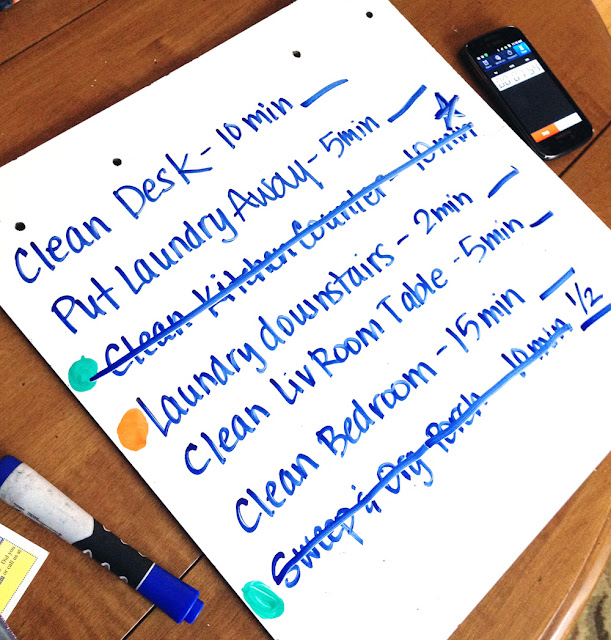 Clean Desk - 10 min —
Put Laundry Away - 5min —
Clean Kitchen Counter - 10 min
Laundry downstairs - 2min —
Clean Liv Room Table - 5min —
Clean Bedroom - 15min —
Sweep & Org Porch - 10min 1/2
Did you
or call us at